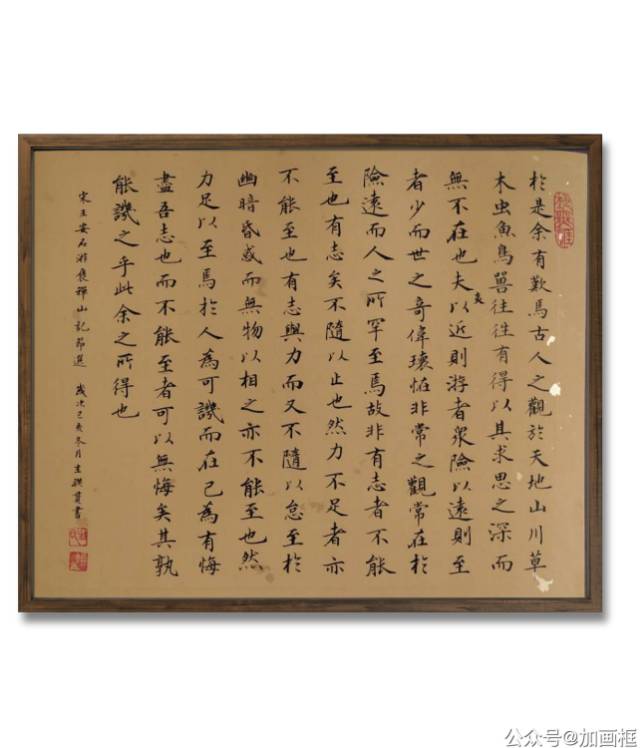 於是余有歎焉古人之觀於天地山川草
木虫魚鳥獸往往有得以其求思之深而
無不在也夫夷以近則游者衆險以遠則至
者少而世之奇偉瓌怪非常之觀常在於
險遠而人之所罕至焉故非有志者不能
至也有志矣不隨以止也然力不足者亦
不能至也有志與力而又不隨以怠至於
幽暗昏惑而無物以相之亦不能至也然
力足以至焉於人為可譏而在己為有悔
盡吾志也而不能至者可以無悔矣其孰
能譏之乎此余之所得也
宋王安石游褒禪山記節選 歲次己亥冬月 書
公众号@加画框